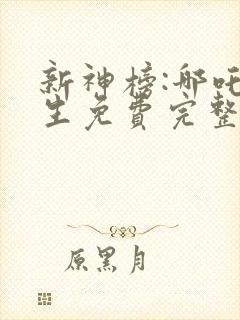 新神榜:哪吒
生免费完整
原黑月